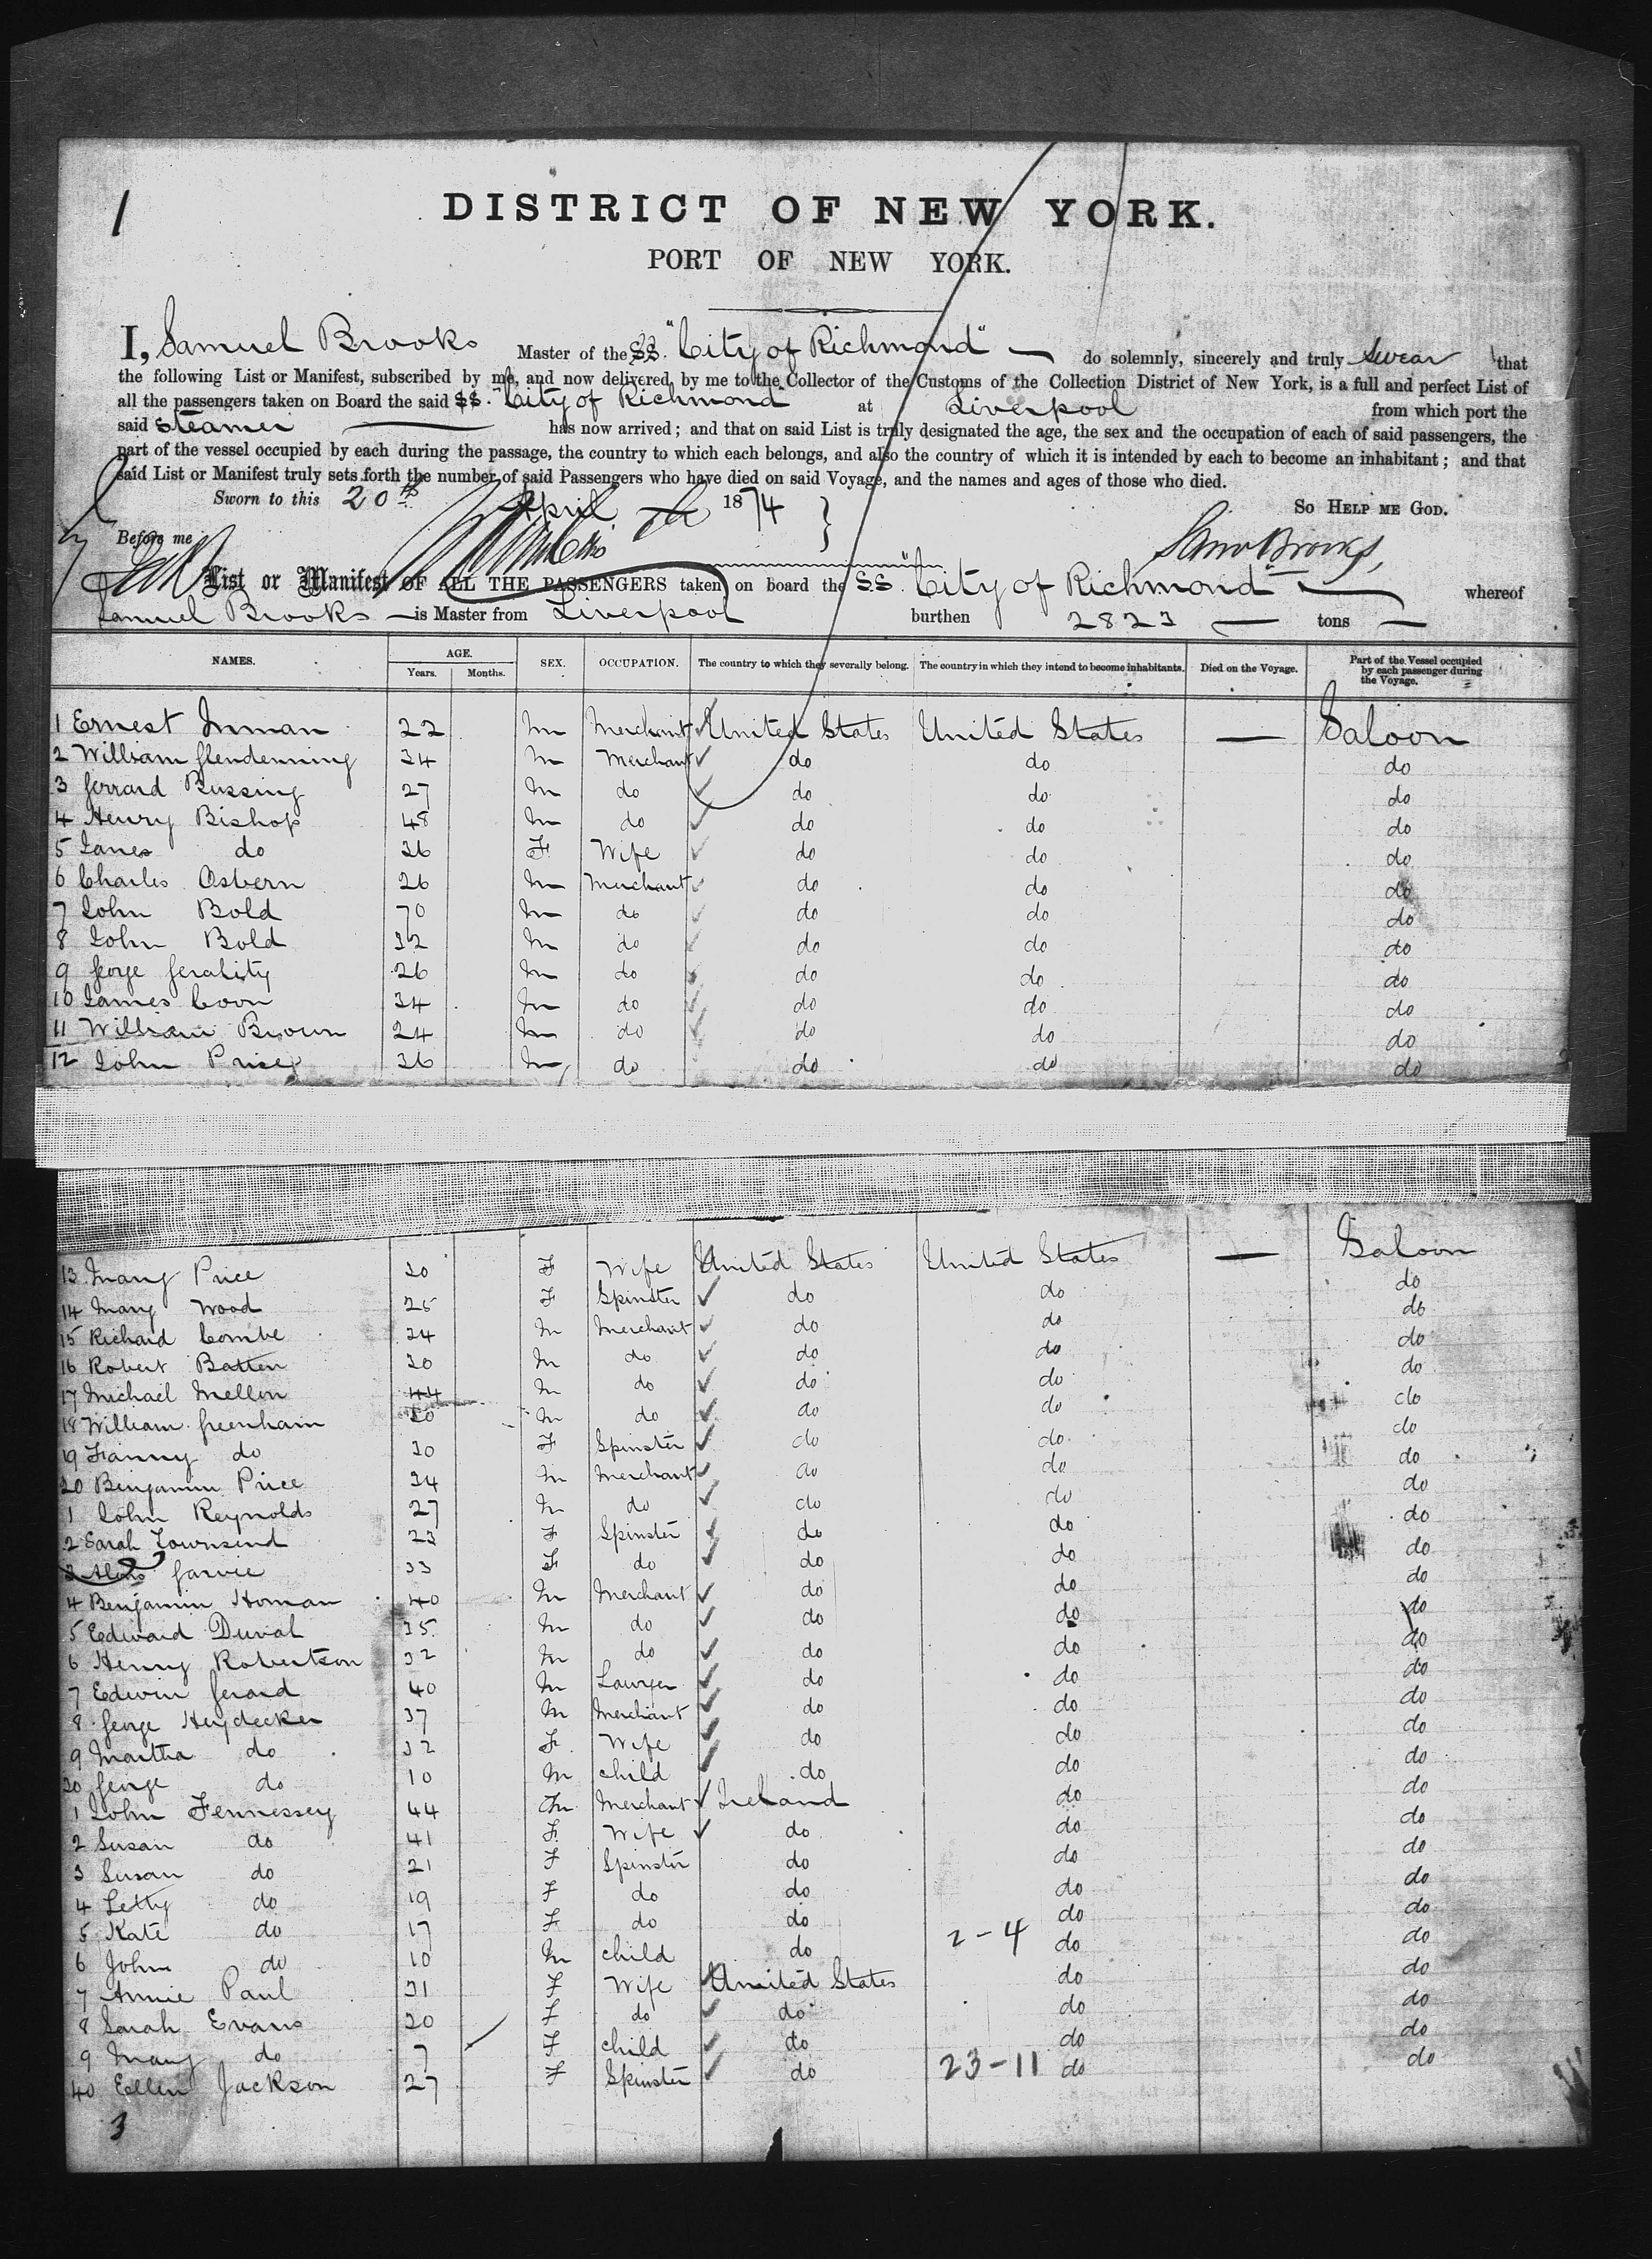 1
DISTRICT OF NEW YORK.
PORT OF NEW YORK.
I, Samuel Brooks Master of the SS. "City of Richmond" — do solemnly, sincerely and truly Swear that
the following List or Manifest, subscribed by me, and now delivered by me to the Collector of the Customs of the Collection District of New York, is a full and perfect List of
all the passengers taken on Board the said SS. "City of Richmond" at Liverpool from which port the
said Steamer — has now arrived; and that on said List is truly designated the age, the sex and the occupation of each of said passengers, the
part of the vessel occupied by each during the passage, the country to which each belongs, and also the country of which it is intended by each to become an inhabitant; and that
said List or Manifest truly sets forth the number of said Passengers who have died on said Voyage, and the names and ages of those who died.
Sworn to this 20th April 1874 So Help me God.
Before me Saml Brooks,
List or Manifest OF ALL THE PASSENGERS taken on board the SS. "City of Richmond" — whereof
Samuel Brooks — is Master from Liverpool burthen 2823 — tons —
NAMES. AGE. Years. Months. SEX. OCCUPATION. The country to which they severally belong. The country in which they intend to become inhabitants. Died on the Voyage. Part of the Vessel occupied by each passenger during the Voyage.
1 Ernest Inman 22 M Merchant United States United States — Saloon
2 William Glendenning 34 M Merchant do do do
3 Gerrard Bussing 27 M do do do do
4 Henry Bishop 48 M do do do do
5 Janes do 36 F Wife do do do
6 Charles Osbern 26 M Merchant do do do
7 John Bold 70 M do do do do
8 John Bold 32 M do do do do
9 George Gerality 26 M do do do do
10 James Coon 34 M do do do do
11 William Brown 24 M do do do do
12 John Price 36 M do do do do
13 Mary Price 30 F Wife United States United States — Saloon
14 Mary Wood 25 F Spinster do do do
15 Richard Combe 34 M Merchant do do do
16 Robert Batten 30 M do do do do
17 Michael Mellon 44 M do do do do
18 William Greenham 50 M do do do do
19 Fanny do 30 F Spinster do do do
20 Benjamin Price 34 M Merchant do do do
1 John Reynolds 27 M do do do do
2 Sarah Townsend 23 F Spinster do do do
3 Garvie 33 F do do do do
4 Benjamin Homan 40 M Merchant do do do
5 Edward Duval 35 M do do do do
6 Henry Robertson 32 M do do do do
7 Edwin Gerard 40 M Lawyer do do do
8 George Heydecker 37 M Merchant do do do
9 Martha do 32 F Wife do do do
30 George do 10 M child do do do
1 John Fennessey 44 M Merchant Ireland do do
2 Susan do 41 F Wife do do do
3 Susan do 21 F Spinster do do do
4 Letty do 19 F do do do do
5 Kate do 17 F do do do do
6 John do 10 M child do 2-4 do do
7 Annie Paul 31 F Wife United States do do
8 Sarah Evans 20 F do do do do
9 Mary do 7 F child do do do
40 Ellen Jackson 27 F Spinster do 23-11 do do
3